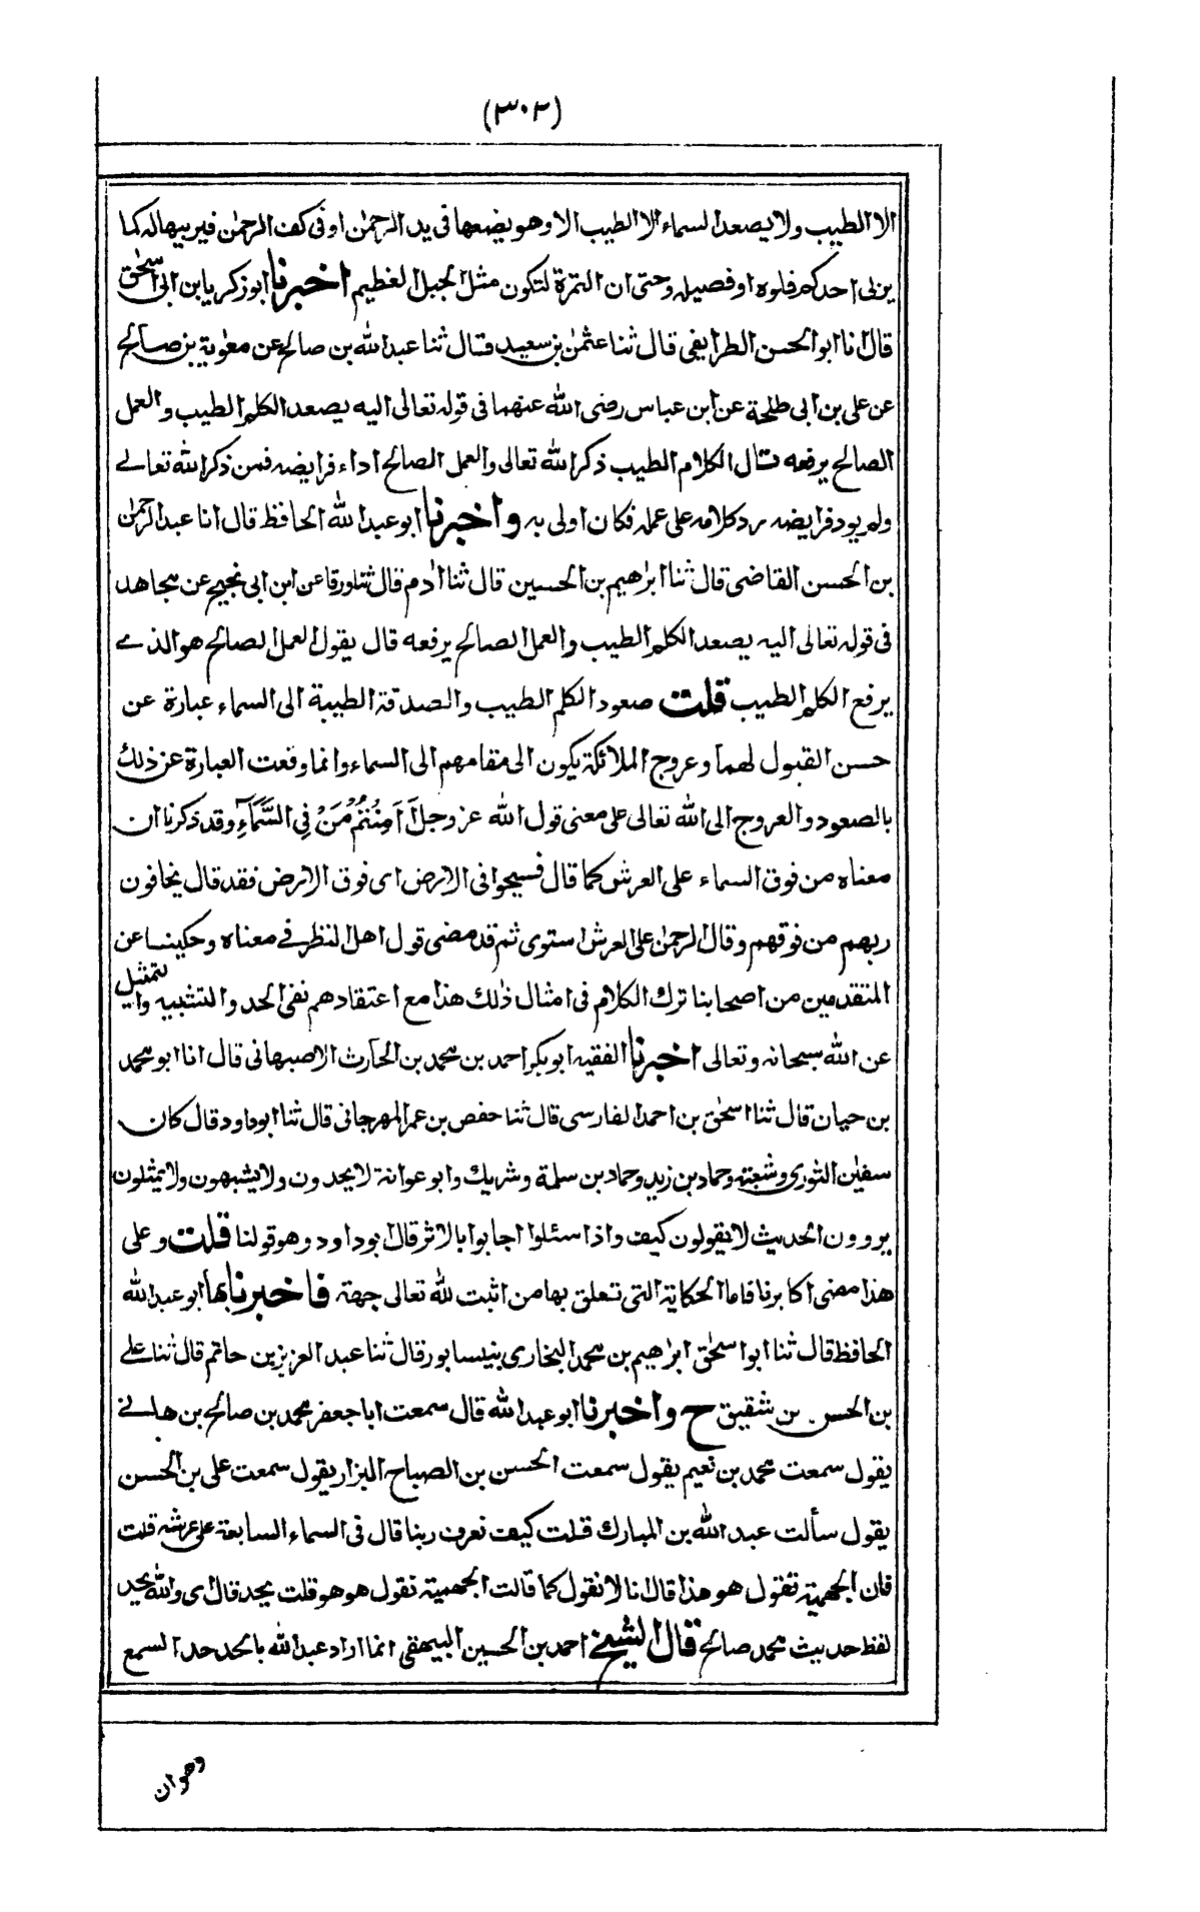 (٣٠٢)
الا الطيب ولا يصعد السماء الا الطيب الا وهو يضعها فى يد الرحمٰن او فى كف الرحمٰن فيربيها له كما
يربى احدكم فلوه او فصيله وحتى ان التمرة لتكون مثل الجبل العظيم اخبرنا ابو زكريا بن ابى اسحٰق
قال انا ابو الحسن الطرايفى قال ثنا عثمٰن بن سعيد قال ثنا عبد الله بن صالح عن معٰوية بن صالح
عن على بن ابى طلحة عن ابن عباس رضى الله عنهما فى قوله تعالى اليه يصعد الكلم الطيب والعمل
الصالح يرفعه قال الكلام الطيب ذكر الله تعالى والعمل الصالح اداء فرايضه فمن ذكر الله تعالے
ولم يود فرايضه رد كلامه على عمله فكان اولى به واخبرنا ابو عبد الله الحافظ قال انا عبد الرحمٰن
بن الحسن القاضى قال ثنا ابرٰهيم بن الحسين قال ثنا اٰدم قال ثنا ورقا عن ابن ابى نجيح عن مجاهد
فى قوله تعالى اليه يصعد الكلم الطيب والعمل الصالح يرفعه قال يقول العمل الصالح هو الذے
يرفع الكلم الطيب قلت صعود الكلم الطيب والصدقة الطيبة الى السماء عبارة عن
حسن القبول لهما وعروج الملائكة يكون الى مقامهم الى السماء وانما وقعت العبارة عن ذلك
بالصعود والعروج الى الله تعالى على معنى قول الله عز وجل ءَاَمِنْتُمْ مَنْ فِى السَّمَآءِ وقد ذكرنا ان
معناه من فوق السماء على العرش كما قال فسيحوا فى الارض اى فوق الارض فقد قال يخافون
ربهم من فوقهم وقال الرحمٰن على العرش استوى ثم قد مضى قول اهل النظر فے معناه وحكينا عن
المتقدمين من اصحابنا ترك الكلام فى امثال ذٰلك هذا مع اعتقادهم نفى الحد والتشبيه والتمثيل
عن الله سبحانه وتعالى اخبرنا الفقيه ابو بكر احمد بن محمد بن الحارث الاصبهانى قال انا ابو محمد
بن حيان قال ثنا اسحٰق بن احمد الفارسى قال ثنا حفص بن عمر المهرجانى قال ثنا ابو داود قال كان
سفيٰن الثورى وشعبة وحماد بن زيد وحماد بن سلمة وشريك وابو عوانة لا يحدون ولا يشبهون ولا يمثلون
يروون الحديث لا يقولون كيف واذا سئلوا اجابوا بالاثر قال ابو داود وهو قولنا قلت وعلى
هذا مضى اكابرنا فاما الحكاية التى تعلق بها من اثبت لله تعالى جهة فاخبرنا بها ابو عبد الله
الحافظ قال ثنا ابو اسحٰق ابرٰهيم بن محمد البخارى بنيسابور قال ثنا عبد العزيز بن حاتم قال ثنا علے
بن الحسن بن شقيق ح واخبرنا ابو عبد الله قال سمعت ابا جعفر محمد بن صالح بن هانے
يقول سمعت محمد بن نعيم يقول سمعت الحسن بن الصباح البزار يقول سمعت على بن الحسن
يقول سألت عبد الله بن المبارك قلت كيف نعرف ربنا قال فى السماء السابعة على عرشه قلت
فان الجهمية تقول هو هذا قال انا لا نقول كما قالت الجهمية نقول هو هو قلت بحد قال اى والله بحد
لفظ حديث محمد صالح قال الشيخ احمد بن الحسين البيهقى انما اراد عبد الله بالحد حد السمع
وهو ان